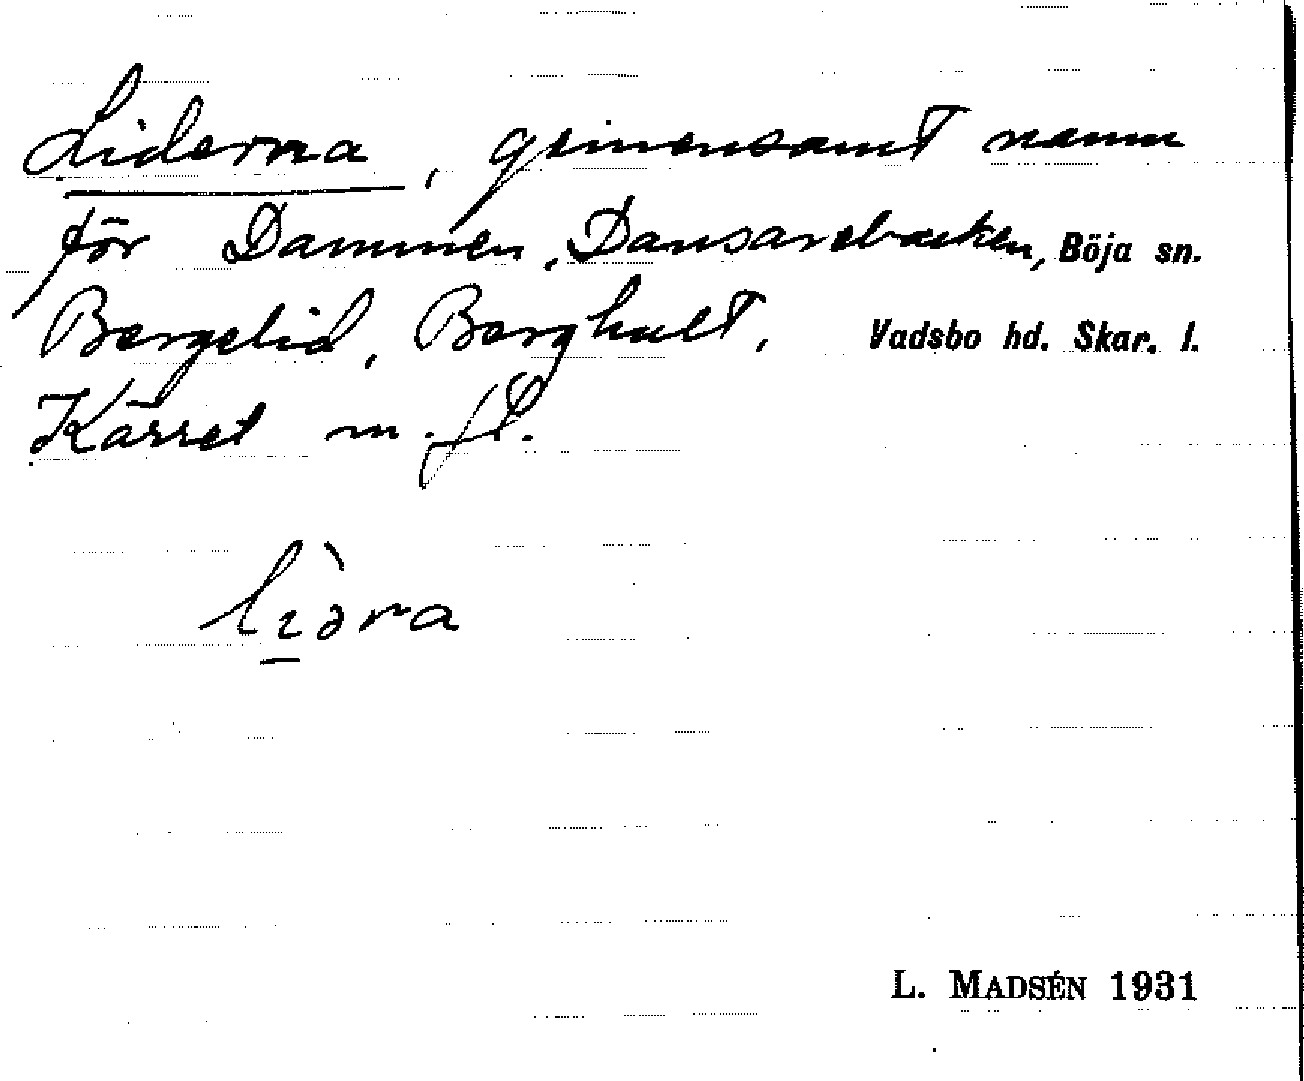 Liderna, gemensamt namn
för Dammen, Dansarebacken, Böja sn.
Bergelid, Berghult, Vadsbo hd. Skar. l.
Kärret m. fl.
lìəra
L. MADSÉN 1931